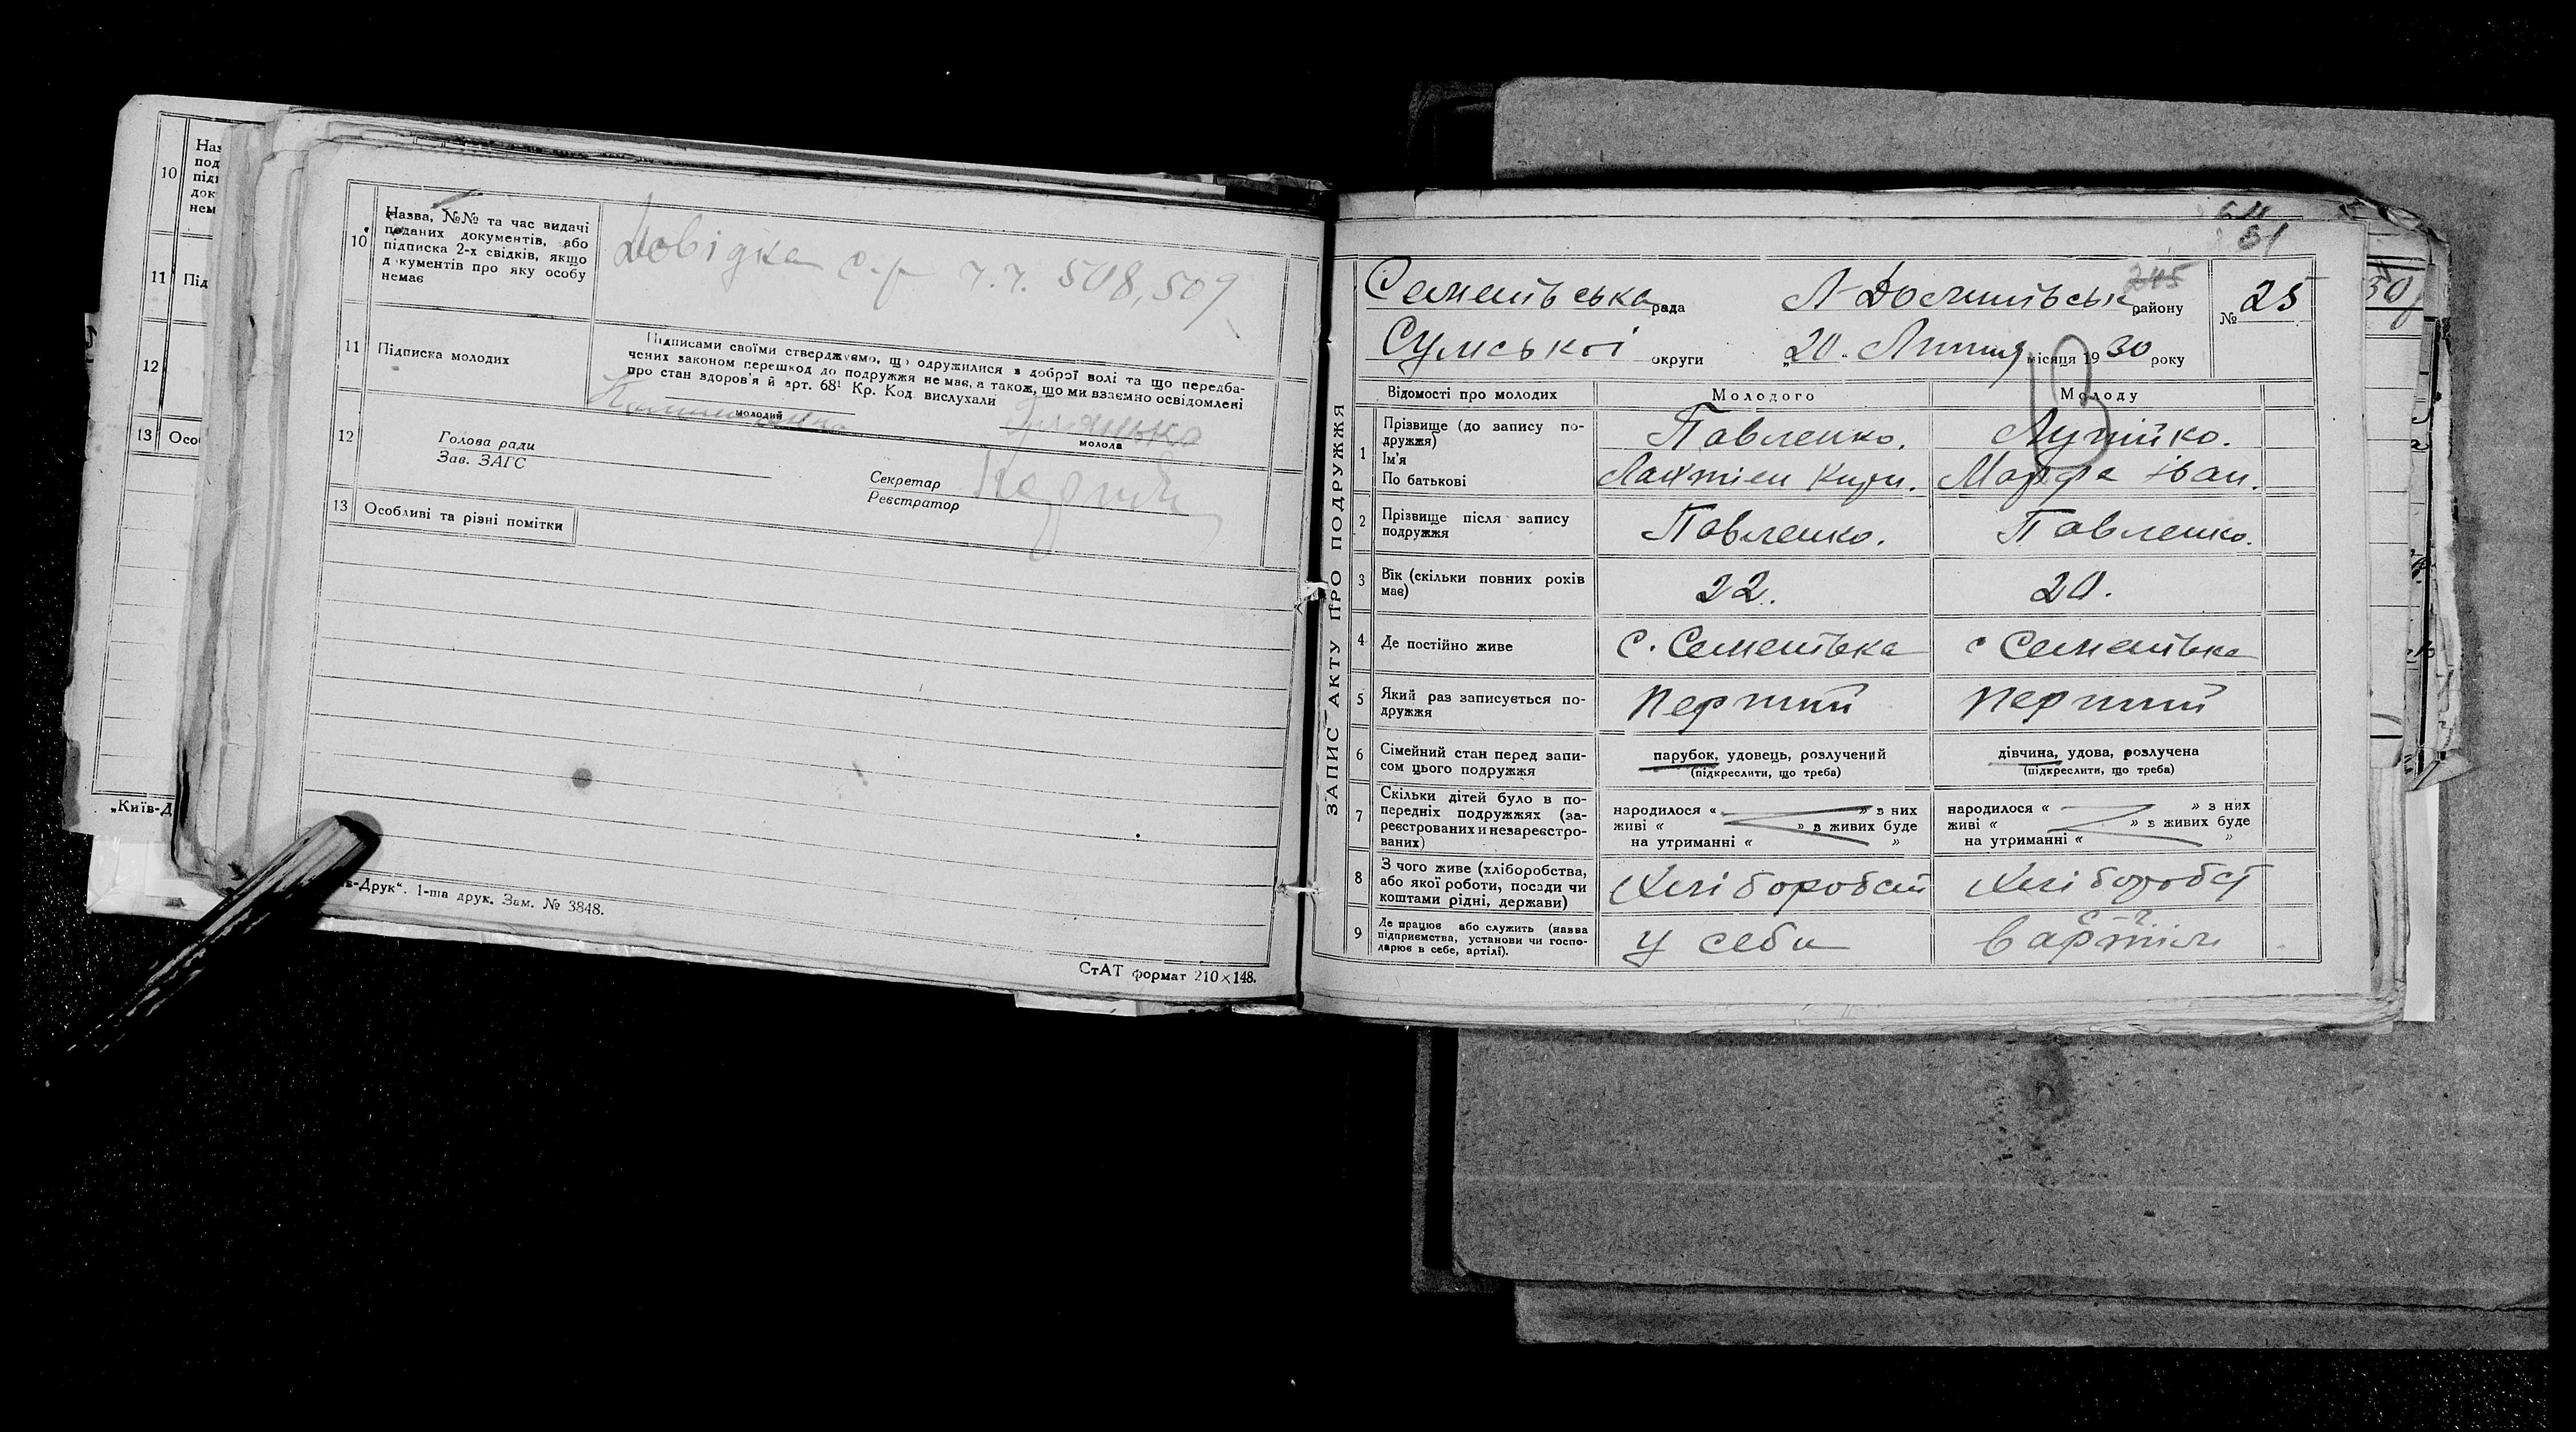 10
Наз
під
док
нем
11
Під
12
13
Осо
„Київ-Д
10
Назва, №№ та час видачі
поданих документів, або
підписка 2-х свідків, якщо
документів про яку особу
немає
Довідка с.р ч.ч. 508, 509
11
Підписка молодих
Підписами своїми стверджуємо, що одружилися з доброї волі та що передба-
чених законом перешкод до подружжя немає, а також, що ми взаємно освідомлені
про стан здоров'я й арт. 68¹ Кр. Код вислухали
молодий
молода
12
Голова ради
Зав. ЗАГС
Секретар
Реєстратор
13
Особливі та різні помітки
в-Друк“. 1-ша друк. Зам. № 3848.
СтАТ формат 210×148.
ЗАПИС АКТУ ПРО ПОДРУЖЖЯ
64
81
245
Семенівська рада
району
№ 25
Сумської округи
„20„ Липня місяця 1930 року
Відомості про молодих
Молодого
Молоду
1
Прізвище (до запису по-
дружжя)
Ім'я
По батькові
Павленко.
Лактіен Кири.
Марфа Іван.
2
Прізвище після запису
подружжя
Павленко.
Павленко.
3
Вік (скільки повних років
має)
22.
20.
4
Де постійно живе
с. Семенівка
с Семенівка
5
Який раз записується по-
дружжя
перший
перший
6
Сімейний стан перед запи-
сом цього подружжя
парубок, удовець, розлучений
(підкреслити, що треба)
дівчина, удова, розлучена
(підкреслити, що треба)
7
Скільки дітей було в по-
передніх подружжях (за-
реєстрованих и незареєстро-
ваних)
народилося « » з них
живі « » з живих буде
на утриманні « »
народилося « » з них
живі « » з живих буде
на утриманні « »
8
З чого живе (хліборобства,
або якої роботи, посади чи
коштами рідні, держави)
Хліборобст
Хліборобст
9
Де працює або служить (назва
підприємства, установи чи госпо-
дарює в себе, артілі).
у себе
в артілі